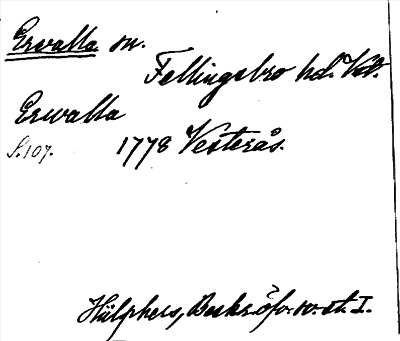 Ervalla sn.
Fellingsbro hd. Vstm.
Erwalla
S. 107. 1778 Vesterås.
Hülphers, Beskr. öfv. w. st. I.